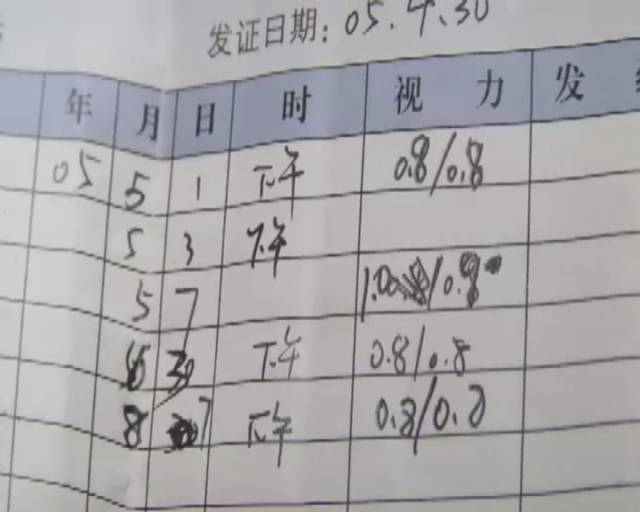 发证日期: 05.4.30
年 月 日 时 视力 发
05 5 1 下午 0.8/0.8
5 3 下午
5 7 /0.8
30 下午 0.8/0.8
8 7 下午 0.8/0.8